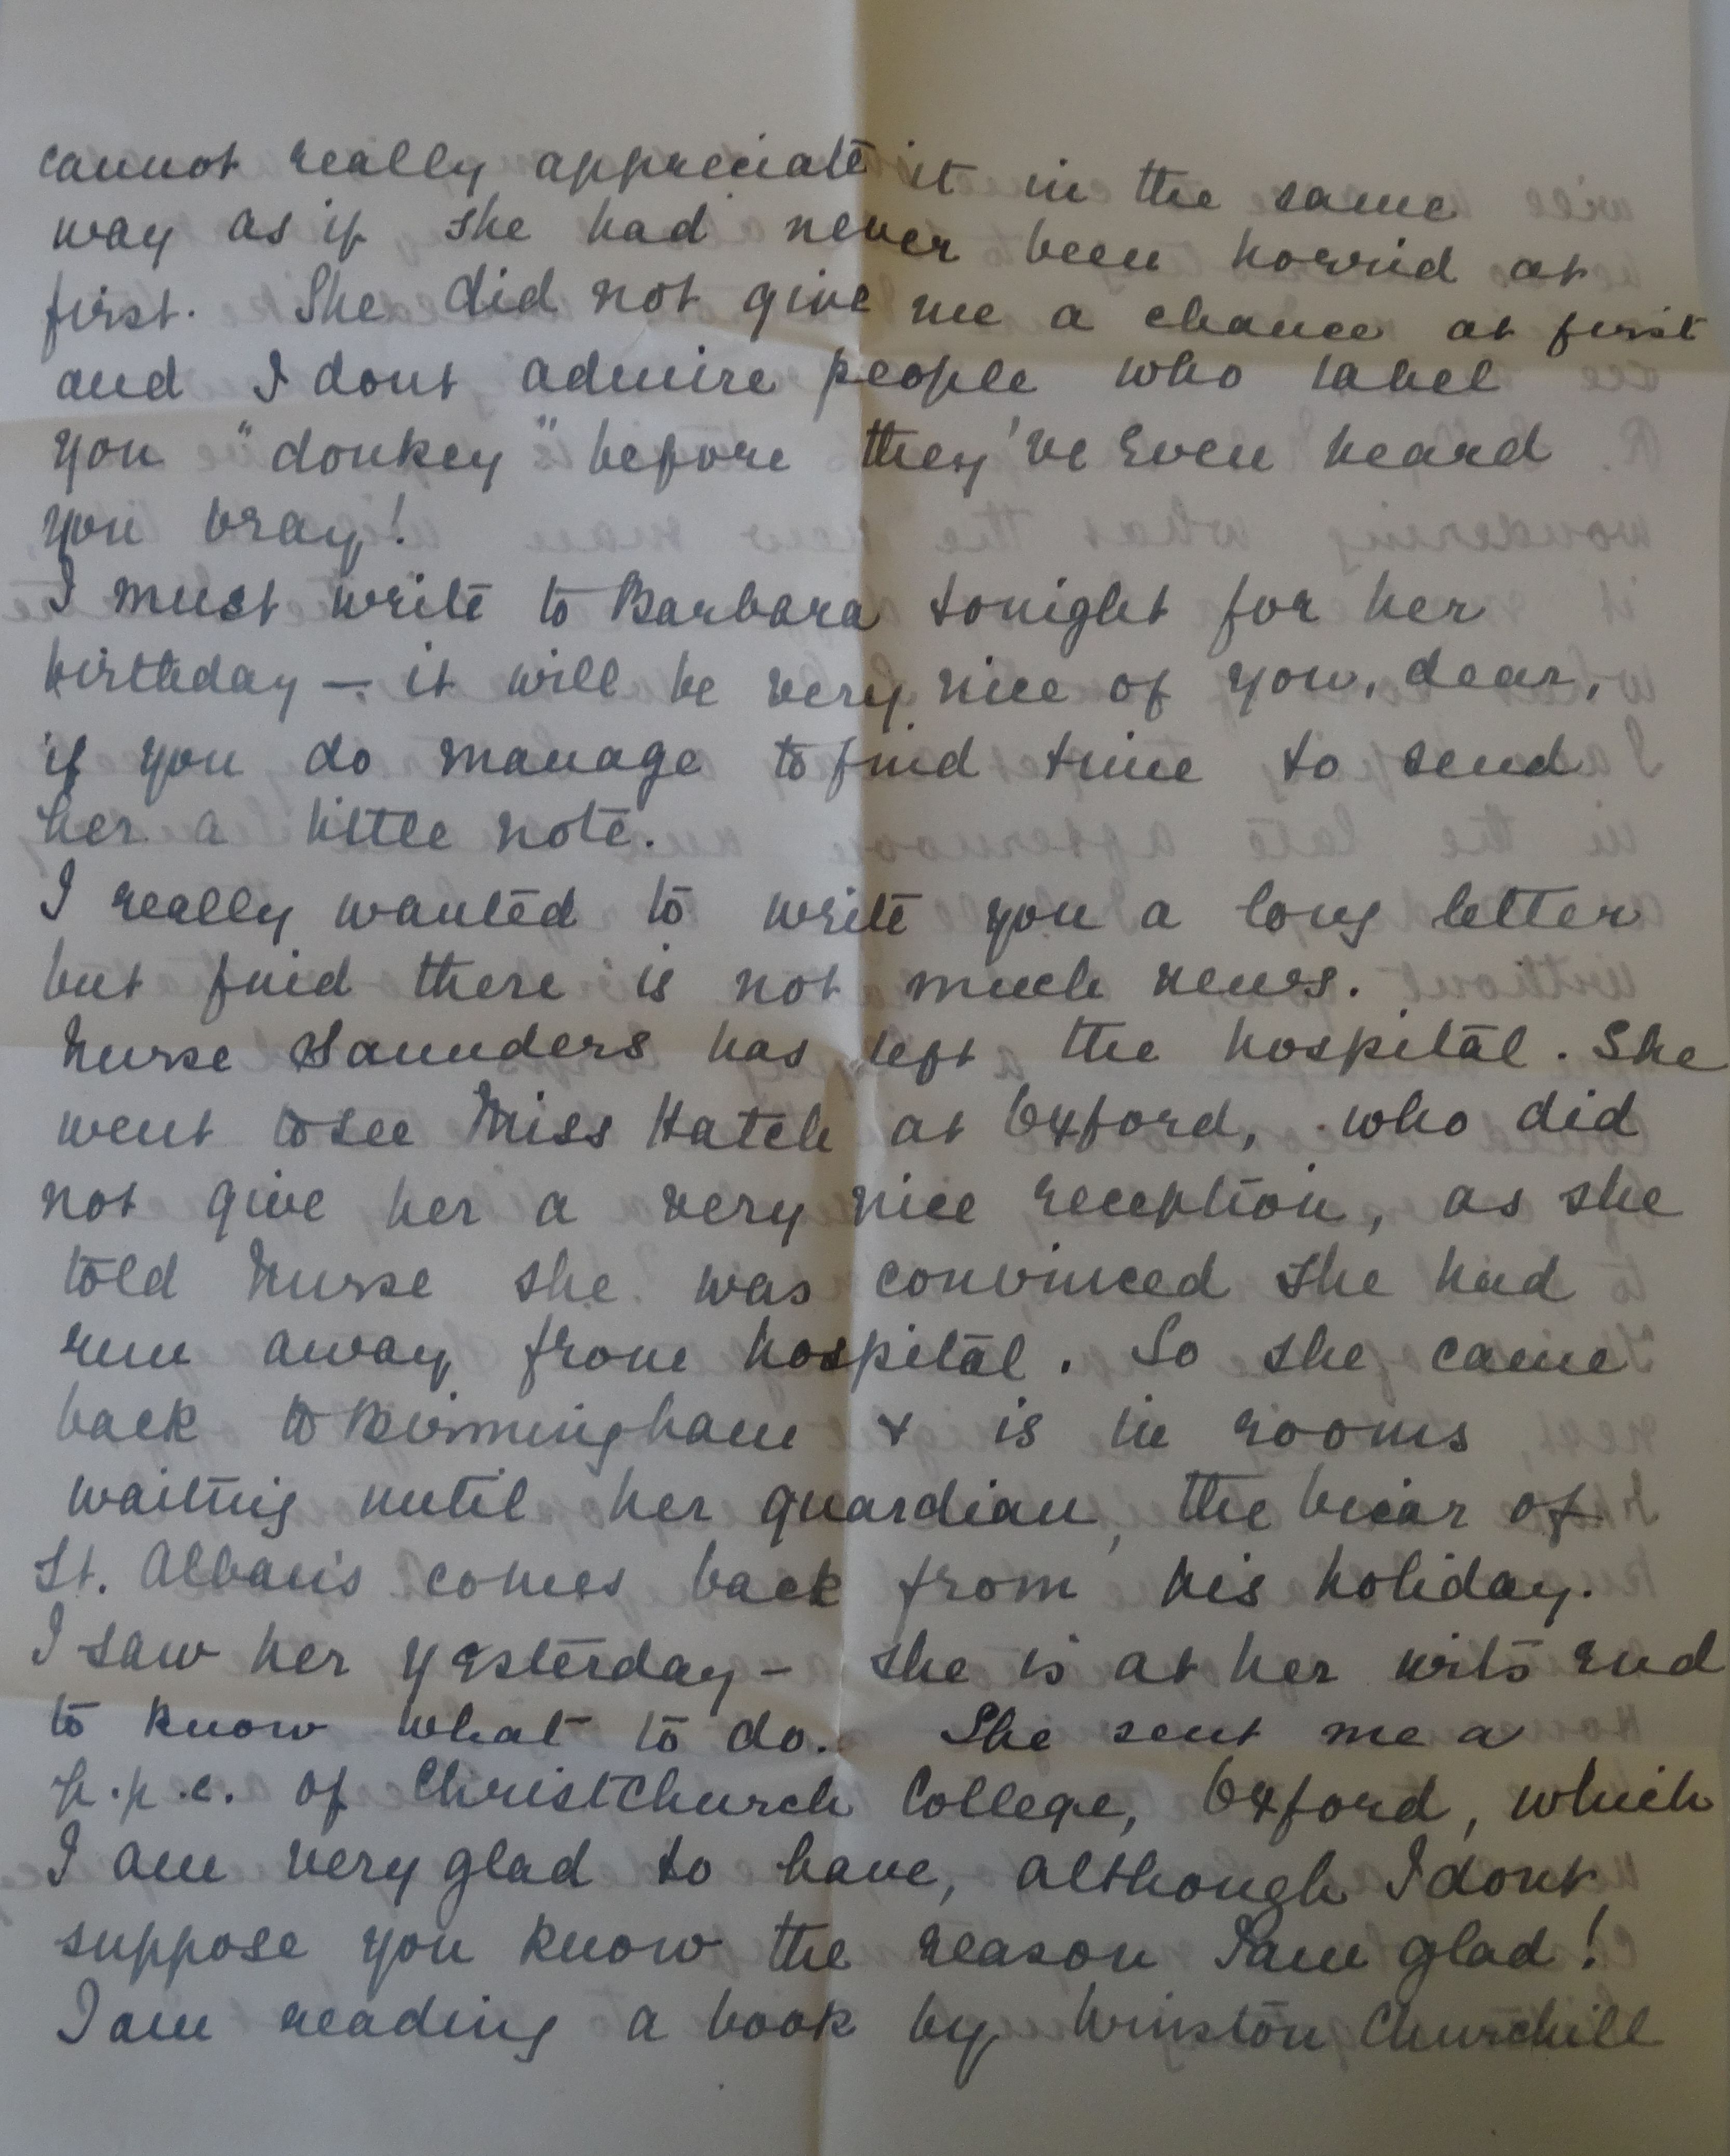 cannot really appreciate it in the same
way as if she had never been horrid at
first. She did not give me a chance at first
and I dont admire people who label
you "donkey" before they've even heard
you bray!
I must write to Barbara tonight for her
birthday — it will be very nice of you, dear,
if you do manage to find time to send
her a little note.
I really wanted to write you a long letter
but find there is not much news.
Nurse Saunders has left the hospital. She
went to see Miss Hatch at Oxford, who did
not give her a very nice reception, as she
told Nurse she was convinced she had
run away from hospital. So she came
back to Birmingham & is in rooms
waiting until her guardian, the vicar of
St. Alban's comes back from his holiday.
I saw her yesterday – she is at her wits end
to know what to do. She sent me a
p.p.c. of ChristChurch College, Oxford, which
I am very glad to have, although I dont
suppose you know the reason I am glad!
I am reading a book by Winston Churchill